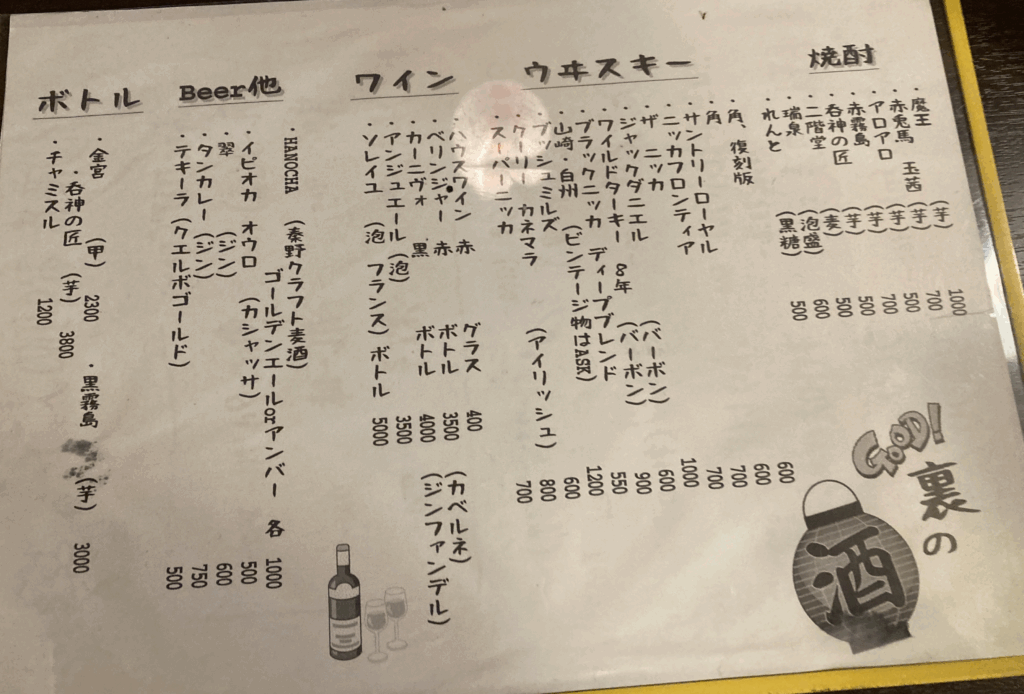 GOOD!
裏の
酒
焼酎
・魔王 (芋) 1000
・赤兎馬 玉茜 (芋) 700
・アロアロ (芋) 500
・赤霧島 (芋) 700
・呑神の匠 (芋) 500
・二階堂 (麦) 500
・瑞泉 (泡盛) 600
・れんと (黒糖) 500
ウヰスキー
・角、復刻版 600
・角 600
・サントリーローヤル 700
・ニッカフロンティア 700
・ザ ニッカ 1000
・ジャックダニエル (バーボン) 600
・ワイルドターキー 8年 (バーボン) 900
・ブラックニッカ ディープブレンド 550
・山崎・白州 (ビンテージ物はASK) 1200
・ブッシュミルズ 600
・クーリー カネマラ (アイリッシュ) 800
・スーパーニッカ 700
ワイン
・ハウスワイン 赤 グラス 400
・ベリンジャー 赤 ボトル 3500 (カベルネ)
・カーニヴォ 黒 ボトル 4000 (ジンファンデル)
・アンジュエール (泡) 3500
・ソレイユ (泡 フランス) ボトル 5000
Beer他
・HANOCHA (秦野クラフト麦酒)
ゴールデンエールorアンバー 各 1000
・イピオカ オウロ (カシャッサ) 500
・翠 (ジン) 600
・タンカレー (ジン) 750
・テキーラ (クエルボゴールド) 500
ボトル
・金宮 (甲) 2300 ・黒霧島 (芋) 3000
・呑神の匠 (芋) 3800
・チャミスル 1200